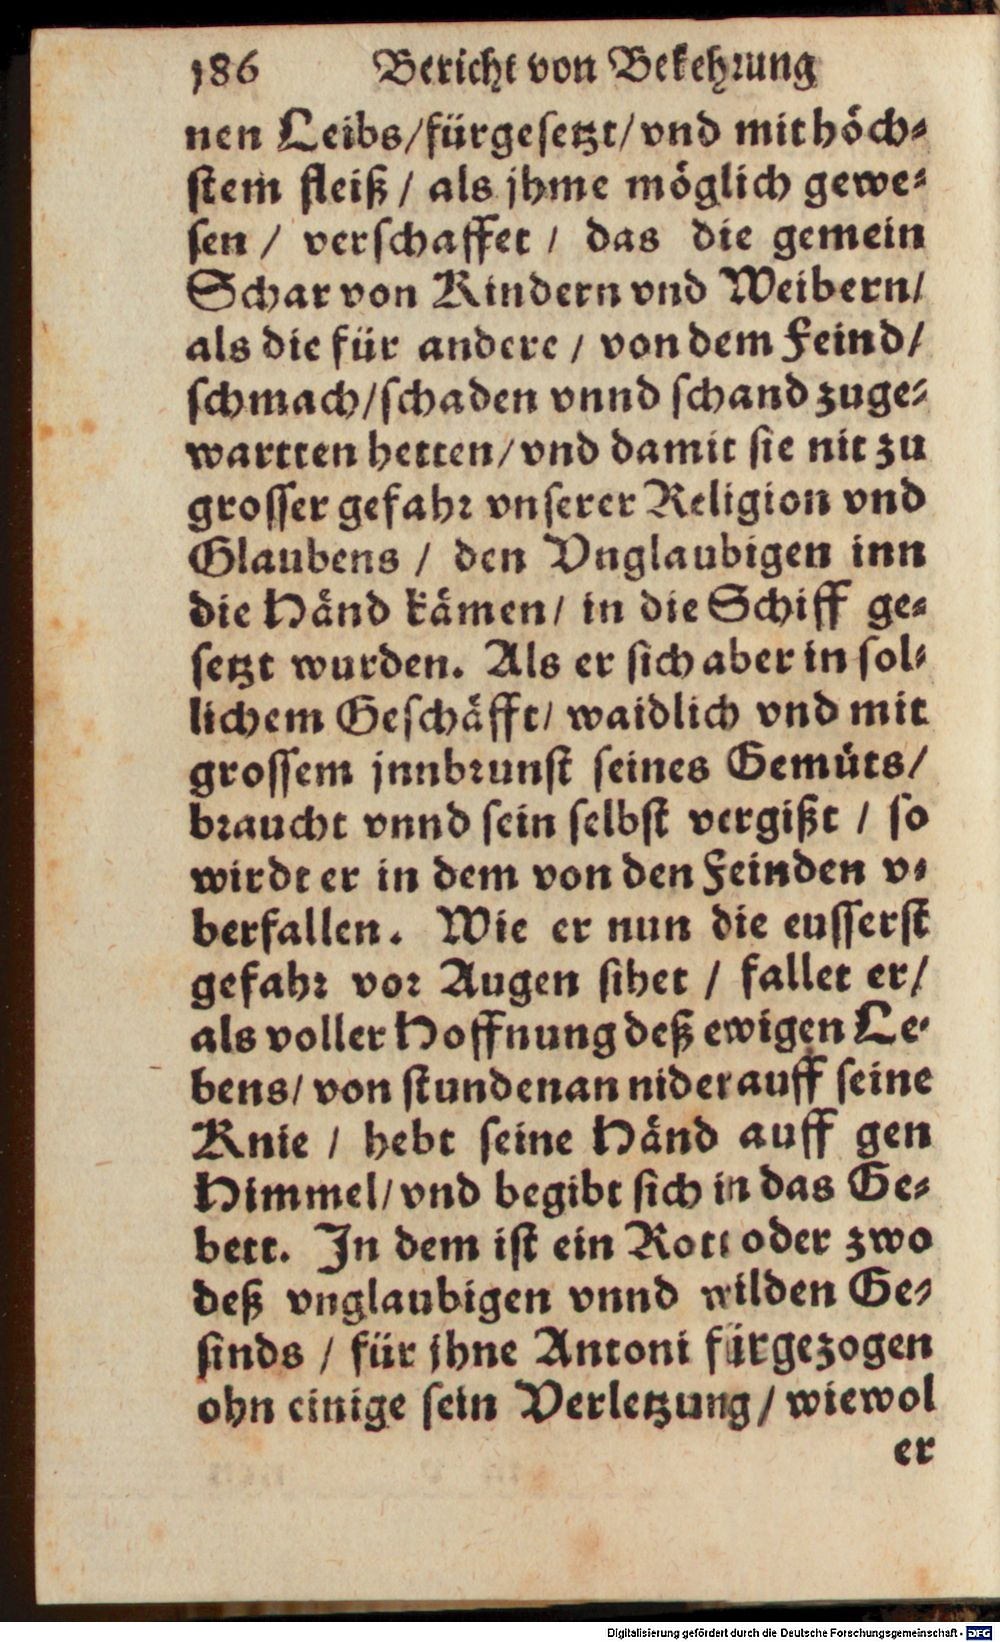 186 Bericht von Bekehrung
nen Leibs/fürgesetzt/vnd mit höch⸗
stem fleiß / als jhme möglich gewe⸗
sen / verschaffet / das die gemein
Schar von Kindern vnd Weibern/
als die für andere / von dem Feind/
schmach/schaden vnnd schand zuge⸗
wartten hetten/vnd damit sie nit zu
grosser gefahr vnserer Religion vnd
Glaubens / den Vnglaubigen inn
die Händ kämen/ in die Schiff ge⸗
setzt wurden. Als er sich aber in sol⸗
lichem Geschäfft/ waidlich vnd mit
grossem jnnbrunst seines Gemüts/
braucht vnnd sein selbst vergißt / so
wirdt er in dem von den Feinden v⸗
berfallen. Wie er nun die eusserst
gefahr vor Augen sihet / fallet er/
als voller Hoffnung deß ewigen Le⸗
bens/ von stundenan nider auff seine
Knie / hebt seine Händ auff gen
Himmel/vnd begibt sich in das Ge⸗
bett. In dem ist ein Rott oder zwo
deß vnglaubigen vnnd wilden Ge⸗
sinds / für jhne Antoni fürgezogen
ohn einige sein Verletzung / wiewol
er
Digitalisierung gefördert durch die Deutsche Forschungsgemeinschaft - DFG